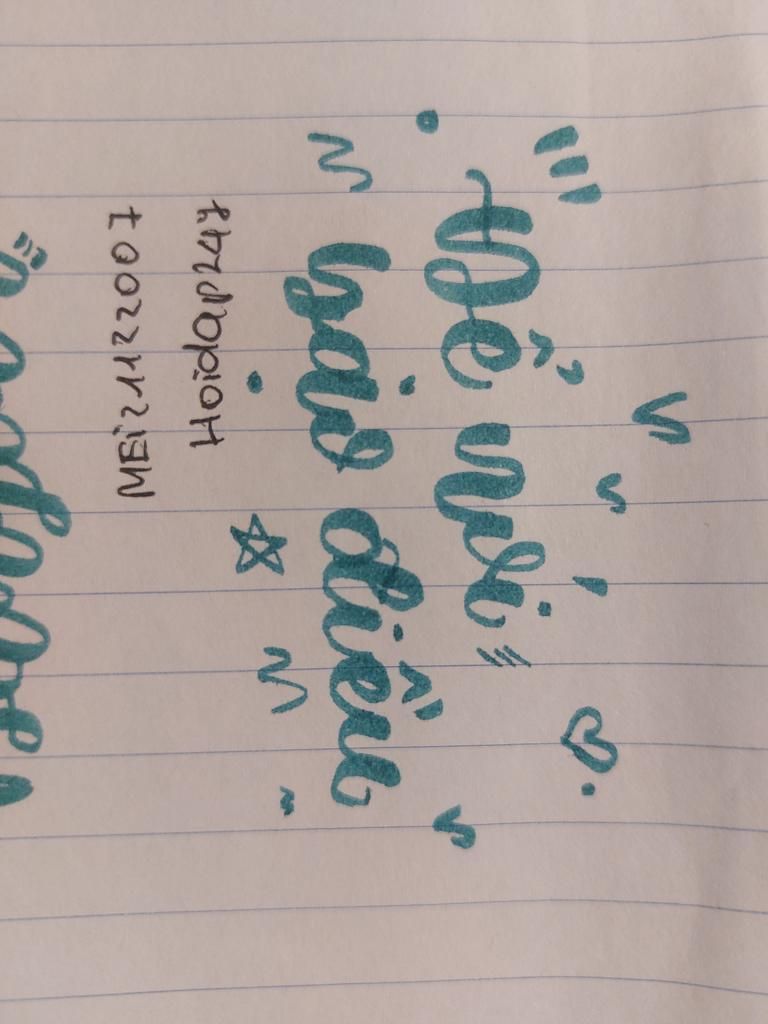 Để nói
bao điều
Hoidap247
MEi21122007